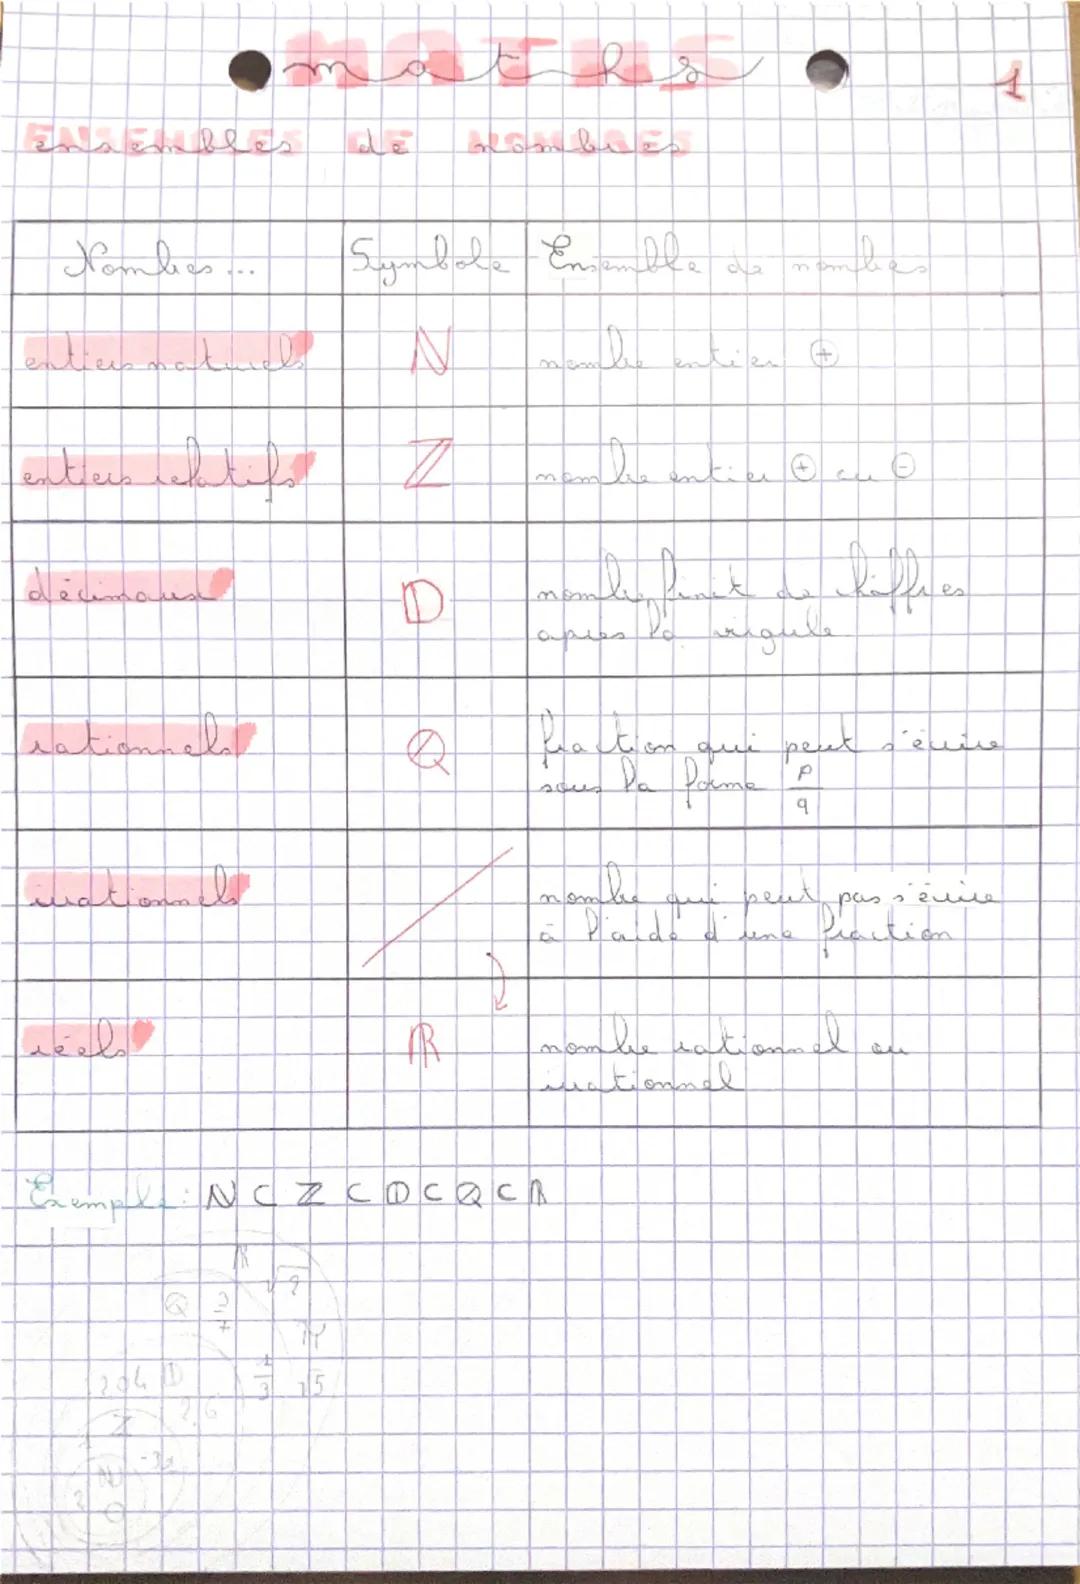 maths
1
ensembles de nombres
Nombres ... Symbole Ensemble de nombres
entiers naturels ℕ nombre entier ⊕
entiers relatifs ℤ nombre entier ⊕ ou ⊖
décimaux 𝔻 nombre finit de chiffres
après la virgule
rationnels ℚ fraction qui peut s'écrire
sous la forme p/q
irrationnels nombre qui peut pas s'écrire
à l'aide d'une fraction
réels ℝ nombre rationnel ou
irrationnel
Exemple : ℕ ⊂ ℤ ⊂ 𝔻 ⊂ ℚ ⊂ ℝ
ℝ
√2
ℚ
π
𝔻
1/3
2,6
ℤ
ℕ
0